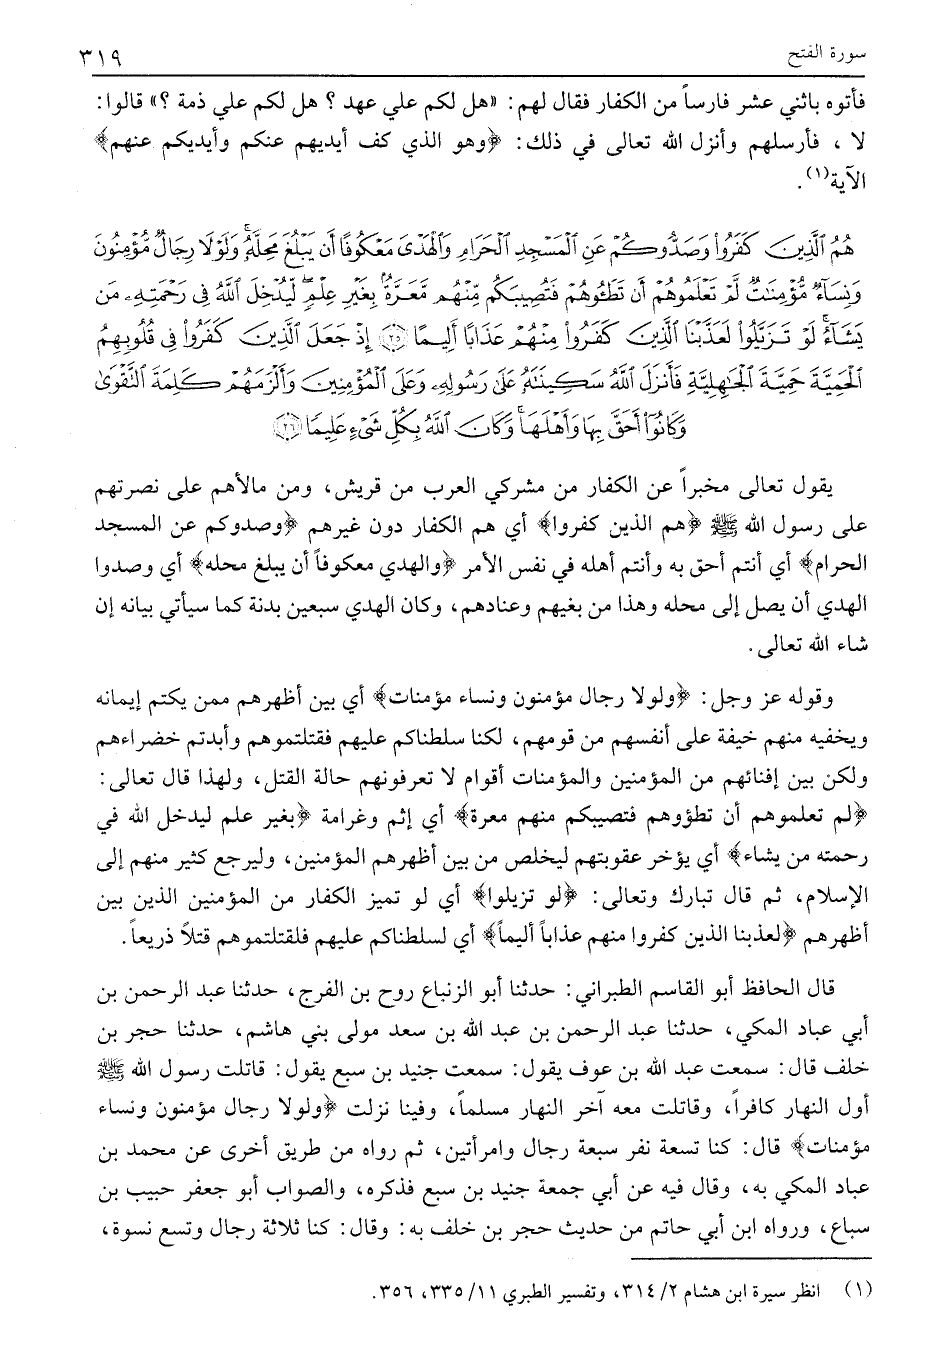 سورة الفتح ٣١٩
فأتوه باثني عشر فارساً من الكفار فقال لهم: «هل لكم علي عهد ؟ هل لكم علي ذمة ؟» قالوا:
لا ، فأرسلهم وأنزل الله تعالى في ذلك: ﴿وهو الذي كف أيديهم عنكم وأيديكم عنهم﴾
الآية(١).
هُمُ ٱلَّذِينَ كَفَرُوا۟ وَصَدُّوكُمْ عَنِ ٱلْمَسْجِدِ ٱلْحَرَامِ وَٱلْهَدْىَ مَعْكُوفًا أَن يَبْلُغَ مَحِلَّهُۥ ۚ وَلَوْلَا رِجَالٌ مُّؤْمِنُونَ
وَنِسَآءٌ مُّؤْمِنَٰتٌ لَّمْ تَعْلَمُوهُمْ أَن تَطَـُٔوهُمْ فَتُصِيبَكُم مِّنْهُم مَّعَرَّةٌۢ بِغَيْرِ عِلْمٍ ۖ لِّيُدْخِلَ ٱللَّهُ فِى رَحْمَتِهِۦ مَن
يَشَآءُ ۚ لَوْ تَزَيَّلُوا۟ لَعَذَّبْنَا ٱلَّذِينَ كَفَرُوا۟ مِنْهُمْ عَذَابًا أَلِيمًا ﴿٢٥﴾ إِذْ جَعَلَ ٱلَّذِينَ كَفَرُوا۟ فِى قُلُوبِهِمُ
ٱلْحَمِيَّةَ حَمِيَّةَ ٱلْجَٰهِلِيَّةِ فَأَنزَلَ ٱللَّهُ سَكِينَتَهُۥ عَلَىٰ رَسُولِهِۦ وَعَلَى ٱلْمُؤْمِنِينَ وَأَلْزَمَهُمْ كَلِمَةَ ٱلتَّقْوَىٰ
وَكَانُوٓا۟ أَحَقَّ بِهَا وَأَهْلَهَا ۚ وَكَانَ ٱللَّهُ بِكُلِّ شَىْءٍ عَلِيمًا ﴿٢٦﴾
يقول تعالى مخبراً عن الكفار من مشركي العرب من قريش، ومن مالأهم على نصرتهم
على رسول الله ﷺ ﴿هم الذين كفروا﴾ أي هم الكفار دون غيرهم ﴿وصدوكم عن المسجد
الحرام﴾ أي أنتم أحق به وأنتم أهله في نفس الأمر ﴿والهدي معكوفاً أن يبلغ محله﴾ أي وصدوا
الهدي أن يصل إلى محله وهذا من بغيهم وعنادهم، وكان الهدي سبعين بدنة كما سيأتي بيانه إن
شاء الله تعالى.
وقوله عز وجل: ﴿ولولا رجال مؤمنون ونساء مؤمنات﴾ أي بين أظهرهم ممن يكتم إيمانه
ويخفيه منهم خيفة على أنفسهم من قومهم، لكنا سلطناكم عليهم فقتلتموهم وأبدتم خضراءهم
ولكن بين إفنائهم من المؤمنين والمؤمنات أقوام لا تعرفونهم حالة القتل، ولهذا قال تعالى:
﴿لم تعلموهم أن تطؤوهم فتصيبكم منهم معرة﴾ أي إثم وغرامة ﴿بغير علم ليدخل الله في
رحمته من يشاء﴾ أي يؤخر عقوبتهم ليخلص من بين أظهرهم المؤمنين، وليرجع كثير منهم إلى
الإسلام، ثم قال تبارك وتعالى: ﴿لو تزيلوا﴾ أي لو تميز الكفار من المؤمنين الذين بين
أظهرهم ﴿لعذبنا الذين كفروا منهم عذاباً أليماً﴾ أي لسلطناكم عليهم فلقتلتموهم قتلاً ذريعاً.
قال الحافظ أبو القاسم الطبراني: حدثنا أبو الزنباع روح بن الفرج، حدثنا عبد الرحمن بن
أبي عباد المكي، حدثنا عبد الرحمن بن عبد الله بن سعد مولى بني هاشم، حدثنا حجر بن
خلف قال: سمعت عبد الله بن عوف يقول: سمعت جنيد بن سبع يقول: قاتلت رسول الله ﷺ
أول النهار كافراً، وقاتلت معه آخر النهار مسلماً، وفينا نزلت ﴿ولولا رجال مؤمنون ونساء
مؤمنات﴾ قال: كنا تسعة نفر سبعة رجال وامرأتين، ثم رواه من طريق أخرى عن محمد بن
عباد المكي به، وقال فيه عن أبي جمعة جنيد بن سبع فذكره، والصواب أبو جعفر حبيب بن
سباع، ورواه ابن أبي حاتم من حديث حجر بن خلف به: وقال: كنا ثلاثة رجال وتسع نسوة،
(١) انظر سيرة ابن هشام ٣١٤/٢، وتفسير الطبري ٣٣٥/١١، ٣٥٦.